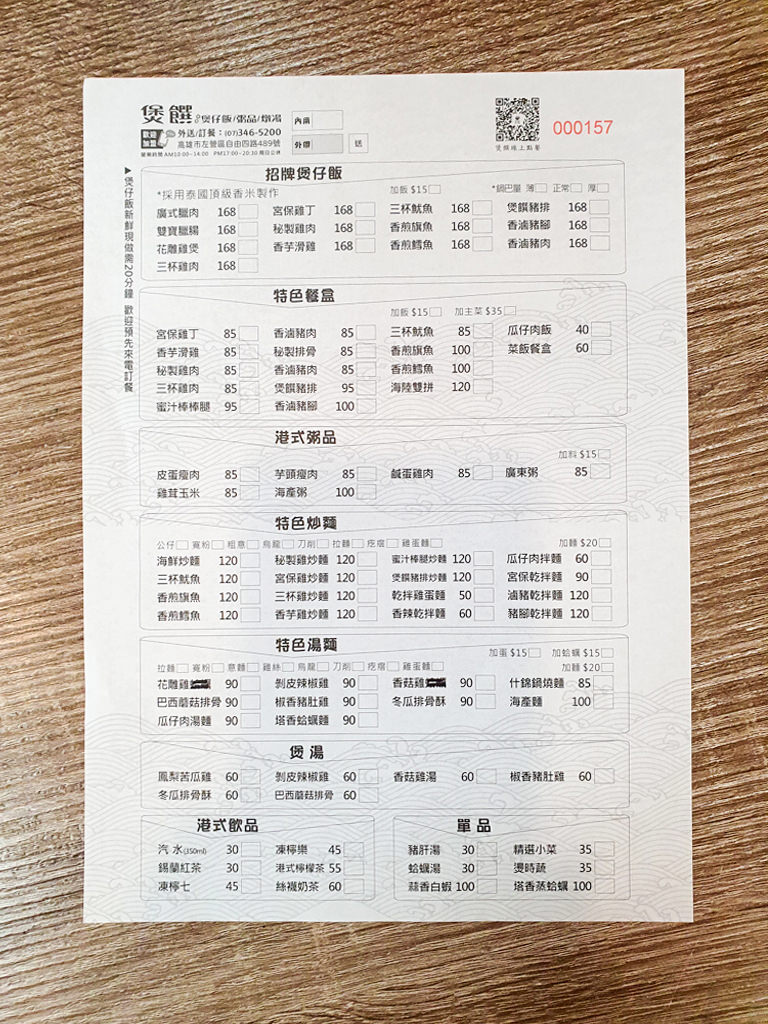 煲饌 の煲仔飯/粥品/燉湯
內用
歡迎加盟 外送/訂餐：(07)346-5200
高雄市左營區自由四路489號
外帶 送
營業時間 AM10:00~14:00 PM17:00~20:30 周日公休
煲饌線上點餐
000157
▲煲仔飯新鮮現做需20分鐘 歡迎預先來電訂餐
招牌煲仔飯
*採用泰國頂級香米製作 加飯 $15 *鍋巴量 薄 正常 厚
廣式臘肉 168 宮保雞丁 168 三杯魷魚 168 煲饌豬排 168
雙寶臘腸 168 秘製雞肉 168 香煎旗魚 168 香滷豬腳 168
花雕雞煲 168 香芋滑雞 168 香煎鱈魚 168 香滷豬肉 168
三杯雞肉 168
特色餐盒
加飯 $15 加主菜 $35
宮保雞丁 85 香滷豬肉 85 三杯魷魚 85 瓜仔肉飯 40
香芋滑雞 85 秘製排骨 85 香煎旗魚 100 菜飯餐盒 60
秘製雞肉 85 香滷豬肉 85 香煎鱈魚 100
三杯雞肉 85 煲饌豬排 95 海陸雙拼 120
蜜汁棒棒腿 95 香滷豬腳 100
港式粥品
加料 $15
皮蛋瘦肉 85 芋頭瘦肉 85 鹹蛋雞肉 85 廣東粥 85
雞茸玉米 85 海產粥 100
特色炒麵
公仔 寬粉 粗意 烏龍 刀削 拉麵 疙瘩 雞蛋麵 加麵 $20
海鮮炒麵 120 秘製雞炒麵 120 蜜汁棒腿炒麵 120 瓜仔肉拌麵 60
三杯魷魚 120 宮保雞炒麵 120 煲饌豬排炒麵 120 宮保乾拌麵 90
香煎旗魚 120 三杯雞炒麵 120 乾拌雞蛋麵 50 滷豬乾拌麵 120
香煎鱈魚 120 香芋雞炒麵 120 香辣乾拌麵 60 豬腳乾拌麵 120
特色湯麵
加蛋 $15 加蛤蠣 $15
拉麵 寬粉 意麵 雞絲 烏龍 刀削 疙瘩 雞蛋麵 加麵 $20
花雕雞 90 剝皮辣椒雞 90 香菇雞 90 什錦鍋燒麵 85
巴西蘑菇排骨 90 椒香豬肚雞 90 冬瓜排骨酥 90 海產麵 100
瓜仔肉湯麵 90 塔香蛤蠣麵 90
煲湯
鳳梨苦瓜雞 60 剝皮辣椒雞 60 香菇雞湯 60 椒香豬肚雞 60
冬瓜排骨酥 60 巴西蘑菇排骨 60
港式飲品
汽水(350ml) 30 凍檸樂 45
錫蘭紅茶 30 港式檸檬茶 55
凍檸七 45 絲襪奶茶 60
單品
豬肝湯 30 精選小菜 35
蛤蠣湯 30 燙時蔬 35
蒜香白蝦 100 塔香蒸蛤蠣 100